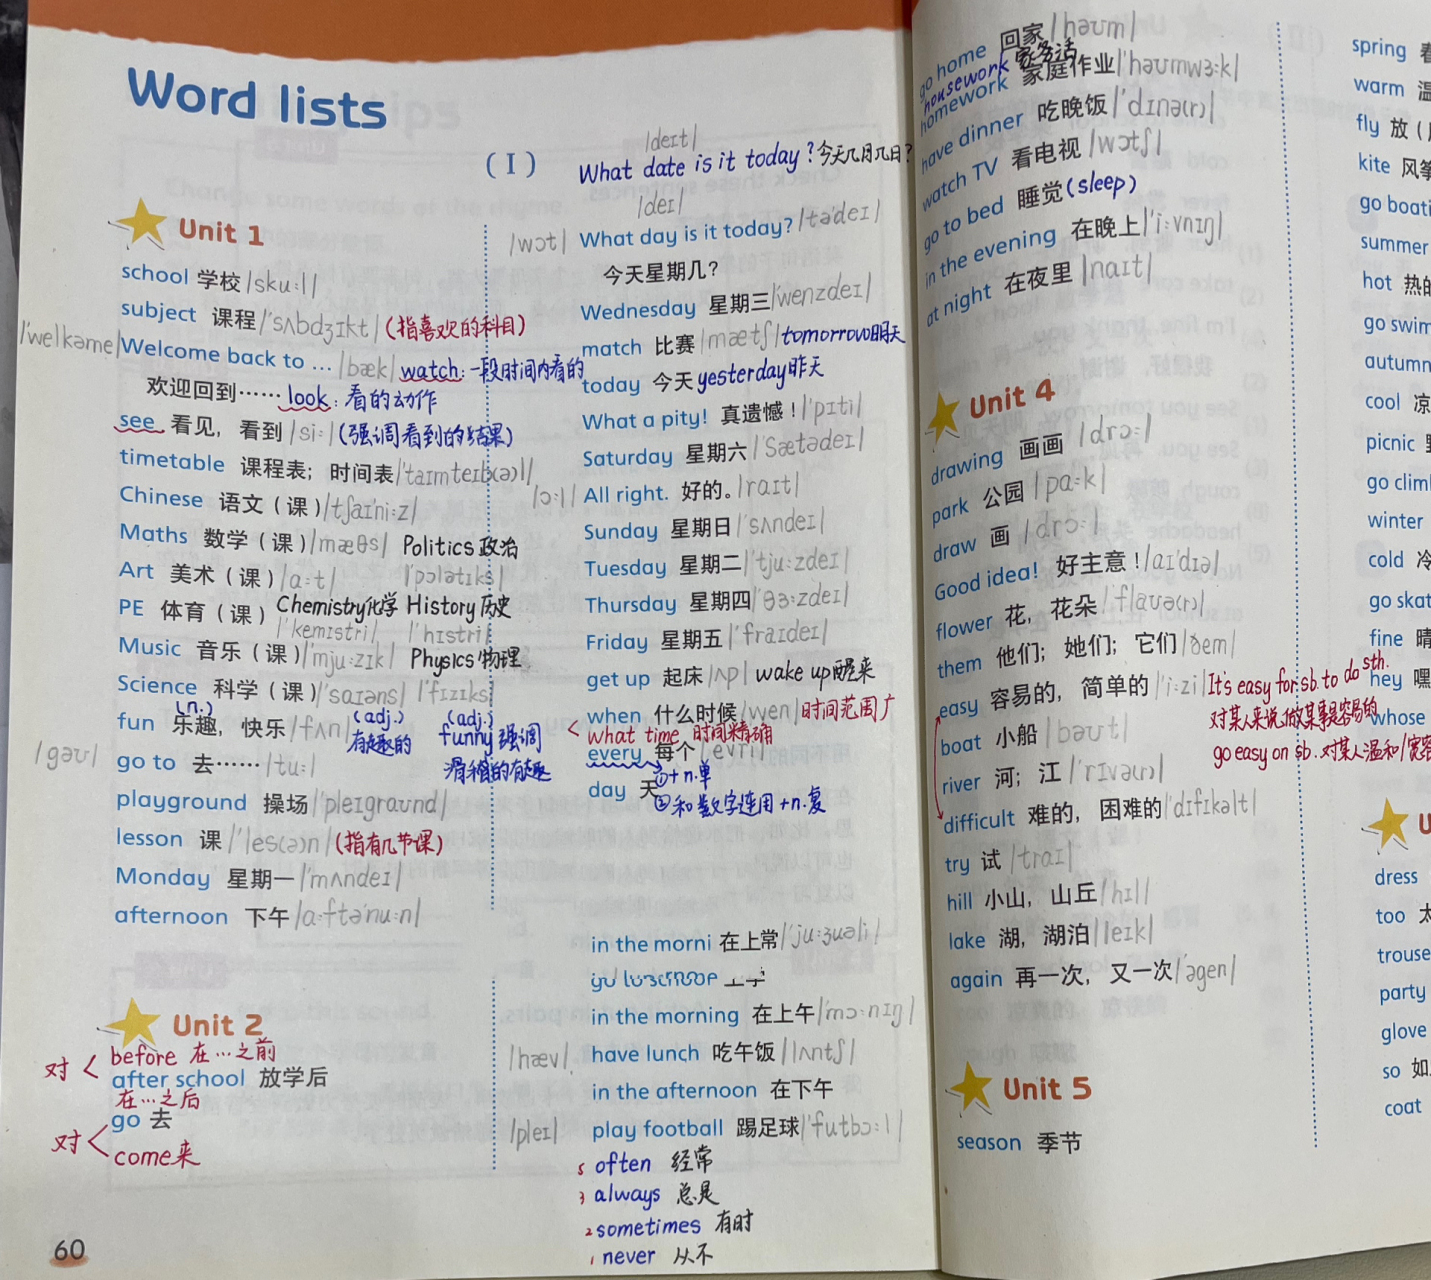 Word lists
(I)
Unit 1
school 学校 /sku:l/
subject 课程 /'sʌbdʒɪkt/ (指喜欢的科目)
/'welkəme/ Welcome back to … /bæk/ watch: 一段时间内看的
欢迎回到…… look: 看的动作
see 看见，看到 /si:/ (强调看到的结果)
timetable 课程表；时间表 /'taɪmteɪb(ə)l/
Chinese 语文（课） /tʃaɪ'ni:z/
Maths 数学（课） /mæθs/ Politics 政治
Art 美术（课） /a:t/ /'pɔlətɪks/
PE 体育（课） Chemistry化学 History 历史
/'kemɪstri/ /'hɪstri/
Music 音乐（课） /'mju:zɪk/ Physics 物理
Science 科学（课） /'saɪəns/ /'fɪzɪks/
(n.) (adj.) (adj.)
fun 乐趣，快乐 /fʌn/ 有趣的 funny 强调
滑稽的有趣
/gəʊ/ go to 去…… /tu:/
playground 操场 /'pleɪgraʊnd/
lesson 课 /'les(ə)n/ (指有几节课)
Monday 星期一 /'mʌndeɪ/
afternoon 下午 /a:ftə'nu:n/
Unit 2
对 < before 在…之前
after school 放学后
在…之后
对 < go 去
come来
60
/deɪt/
What date is it today? 今天几月几日?
/deɪ/
/wɔt/ What day is it today? /tədeɪ/
今天星期几？
Wednesday 星期三 /'wenzdeɪ/
match 比赛 /mætʃ/ tomorrow明天
today 今天 yesterday昨天
What a pity! 真遗憾！ /'pɪti/
Saturday 星期六 /'sætədeɪ/
/ɔ:l/ All right. 好的。 /raɪt/
Sunday 星期日 /'sʌndeɪ/
Tuesday 星期二 /'tju:zdeɪ/
Thursday 星期四 /'θɜ:zdeɪ/
Friday 星期五 /'fraɪdeɪ/
get up 起床 /ʌp/ wake up醒来
when 什么时候 /wen/ 时间范围广
< what time 时间精确
every 每个 /'evri/
①+n.单
day 天
②和数字连用+n.复
in the morni 在上常 /'ju:ʒuəli/
in the morning 在上午 /mɔ:nɪŋ/
/hæv/ have lunch 吃午饭 /lʌntʃ/
in the afternoon 在下午
/pleɪ/ play football 踢足球 /'futbɔ:l/
5 often 经常
3 always 总是
2 sometimes 有时
1 never 从不
go home 回家 /həʊm/
housework 家务活
homework 家庭作业 /'həʊmwɜ:k/
have dinner 吃晚饭 /'dɪnə(r)/
watch TV 看电视 /wɔtʃ/
go to bed 睡觉 (sleep)
in the evening 在晚上 /'i:vnɪŋ/
at night 在夜里 /naɪt/
Unit 4
drawing 画画 /drɔ:/
park 公园 /pa:k/
draw 画 /drɔ:/
Good idea! 好主意！ /aɪ'dɪə/
flower 花，花朵 /'flaʊə(r)/
them 他们；她们；它们 /ðem/
easy 容易的，简单的 /'i:zi/ It's easy for sb. to do sth.
对某人来说，做某事是容易的
boat 小船 /bəʊt/
go easy on sb. 对某人温和/宽
river 河；江 /'rɪvə(r)/
difficult 难的，困难的 /'dɪfɪkəlt/
try 试 /traɪ/
hill 小山，山丘 /hɪl/
lake 湖，湖泊 /leɪk/
again 再一次，又一次 /'əgen/
Unit 5
season 季节
spring 春
warm 温
fly 放（
kite 风筝
go boati
summer
hot 热的
go swim
autumn
cool 凉
picnic 野
go climb
winter
cold 冷
go skat
fine 晴
hey 嘿
whose
U
dress
too 太
trouse
party
glove
so 如
coat